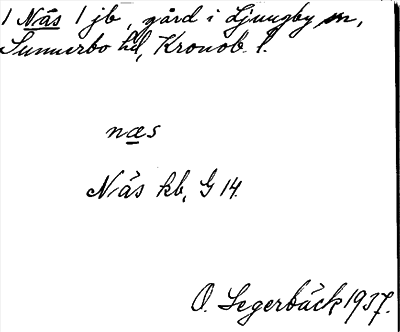 1 Näs 1 jb, gård i Ljungby sn,
Sunnerbo hd, Kronob. l.
næs
Näs kb, G 14.
O. Segerbäck 1937.